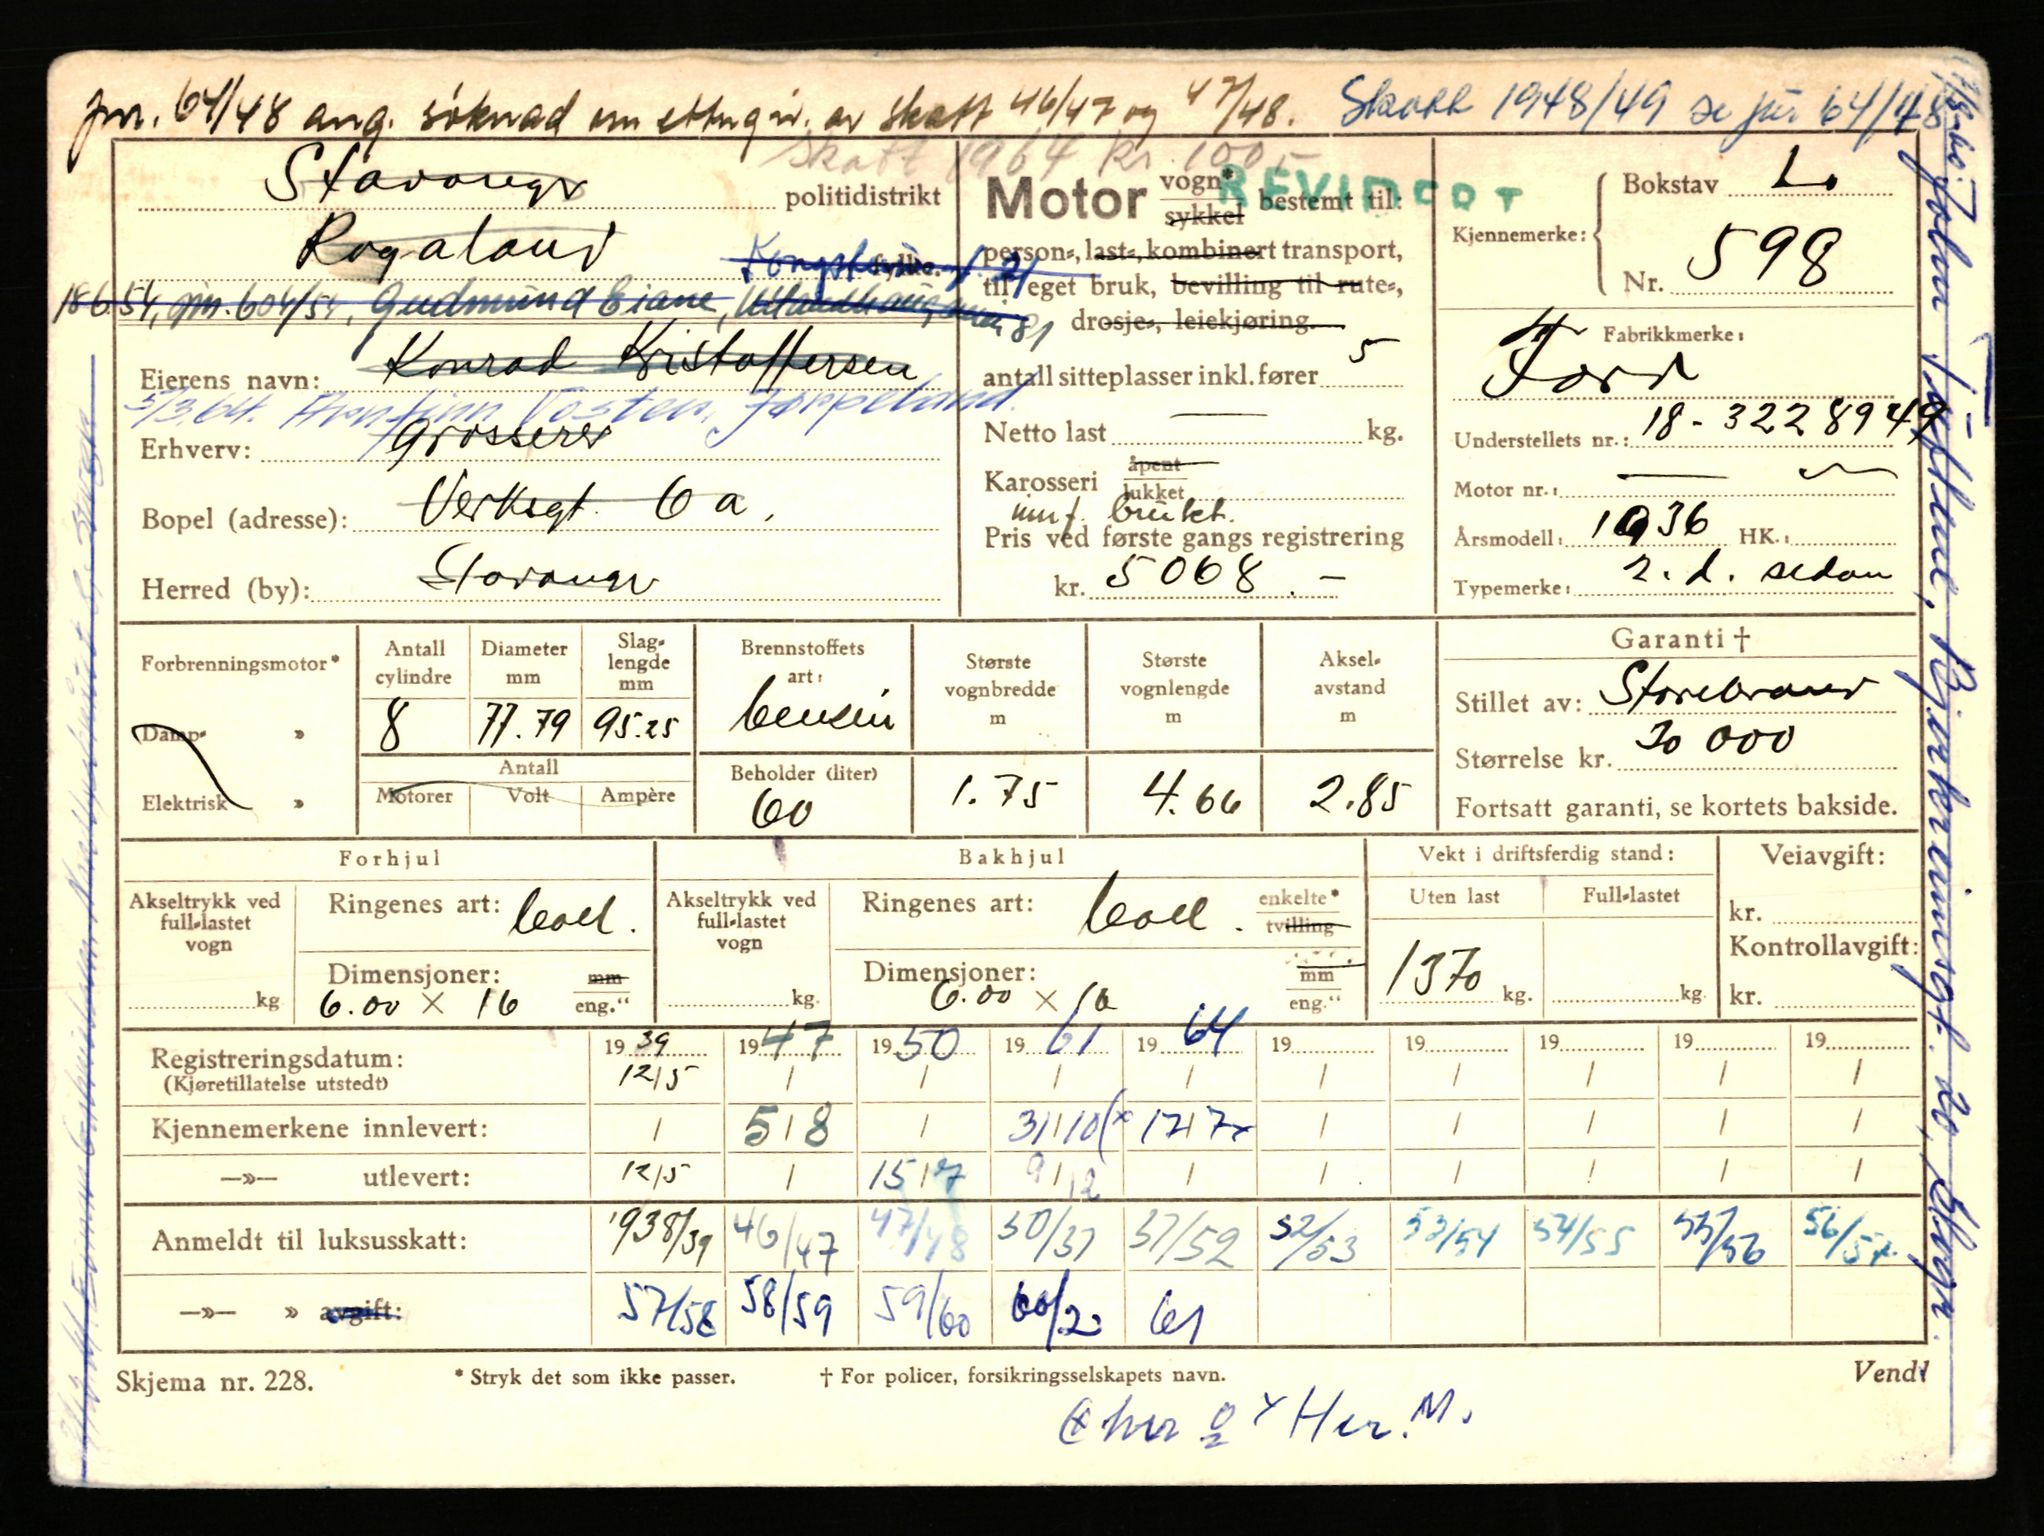 jnr. 64/48 ang. søknad om ettergiv. av skatt 46/47 og 47/48. Skatt 1948/49 se jnr 64/48
skatt 1964 kr. 100,-
Stavanger politidistrikt
Rogaland fylke.
18654, jnr. 604/54, Gudmund Eiane,
Eierens navn: Konrad Kristoffersen
5/3.64. Arnfinn Tosten, Jørpeland.
Erhverv: Grosserer
Bopel (adresse): Verksgt. 6 a.
Herred (by): Stavanger
Motor vogn* sykkel bestemt til:
REVIDERT
person-, last-, kombinert transport,
til eget bruk, bevilling til rute-,
drosje-, leiekjøring.
antall sitteplasser inkl. fører 5
Netto last — kg.
Karosseri åpent lukket
innf. brukt.
Pris ved første gangs registrering
kr. 5068.—
Kjennemerke: Bokstav L.
Nr. 598
Fabrikkmerke: Ford
Understellets nr.: 18-3228949
Motor nr.: —
Årsmodell: 1936 HK.:
Typemerke: 2. d. sedan
Forbrenningsmotor*
Damp- »
Elektrisk »
Antall cylindre 8
Diameter mm 77.79
Slag-lengde mm 95.25
Antall
Motorer Volt Ampère
Brennstoffets art: bensin
Beholder (liter) 60
Største vognbredde m 1.75
Største vognlengde m 4.66
Aksel-avstand m 2.85
Garanti †
Stillet av: Storebrand
Størrelse kr. 20 000
Fortsatt garanti, se kortets bakside.
Forhjul
Akseltrykk ved full-lastet vogn kg
Ringenes art: ball.
Dimensjoner: mm
6.00 × 16 eng."
Bakhjul
Akseltrykk ved full-lastet vogn kg.
Ringenes art: ball. enkelte* tvilling
Dimensjoner: mm
6.00 × 16 eng."
Vekt i driftsferdig stand:
Uten last Full-lastet
1370 kg. kg.
Veiavgift:
kr.
Kontrollavgift:
kr.
Registreringsdatum: 1939 1947 1950 1961 1964 19 19 19 19 19
(Kjøretillatelse utstedt) 12/5 / / / / / / / / /
Kjennemerkene innlevert: / 5/8 / 31/10(x 17/7x / / / / /
—»— utlevert: 12/5 / 15/7 9/12 / / / / / /
Anmeldt til luksusskatt: 1938/39 46/47 47/48 50/51 51/52 52/53 53/54 54/55 55/56 56/57
—»— » avgift: 57/58 58/59 59/60 60/2 61
Skjema nr. 228. * Stryk det som ikke passer. † For policer, forsikringsselskapets navn. Vend!
Her. M.